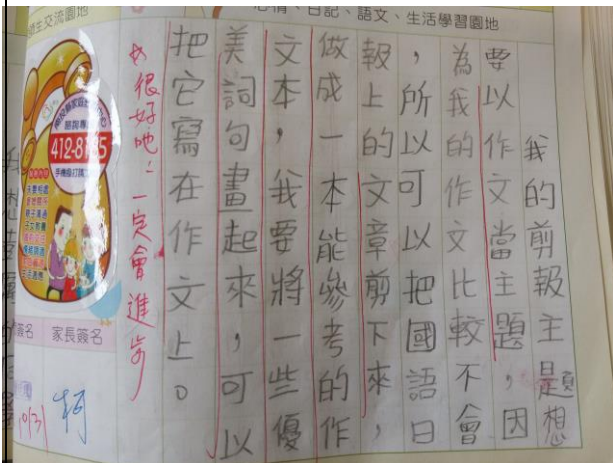 心情、日記、語文、生活學習園地
生交流園地
我的剪報主題是想
要以作文當主題，因
為我的作文比較不會
，所以可以把國語日
報上的文章剪下來，
做成一本能參考的作
文本，我要將一些優
美詞句畫起來，可以
把它寫在作文上。
很好吔！一定會進步
412-8185
簽名
家長簽名
柯